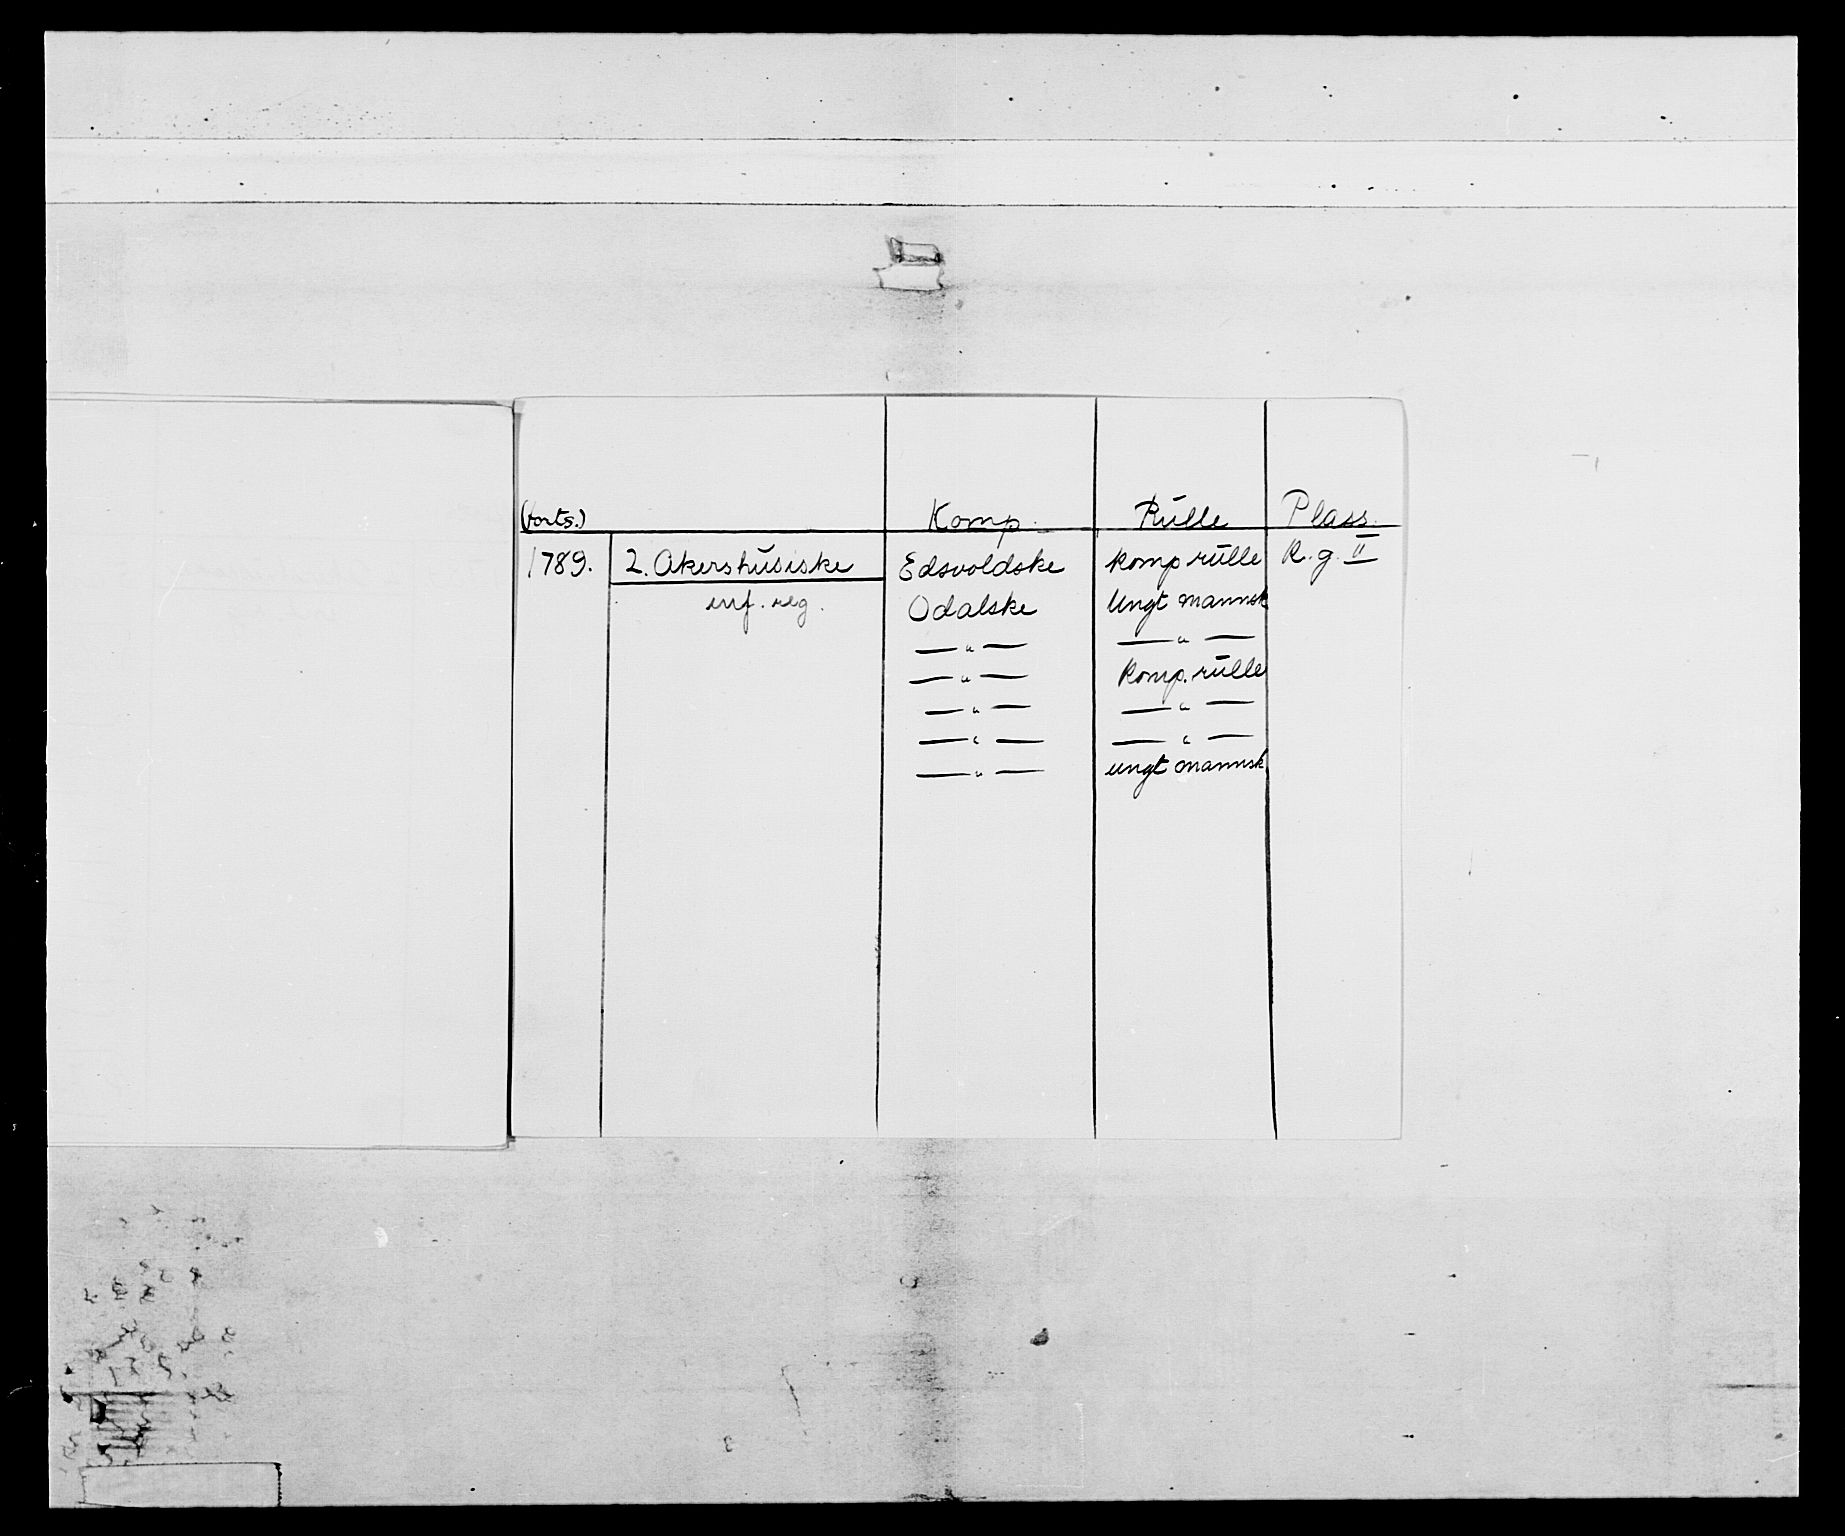 (forts.) Komp. Rulle Plass.
1789. 2. Akershusiske Edsvoldske Komp rulle R. g. II
inf. reg. Odalske Ungt mannsk
— " — — " —
— " — Komp. rulle
— " — — " —
— " — — " —
— " — ungt mannsk.